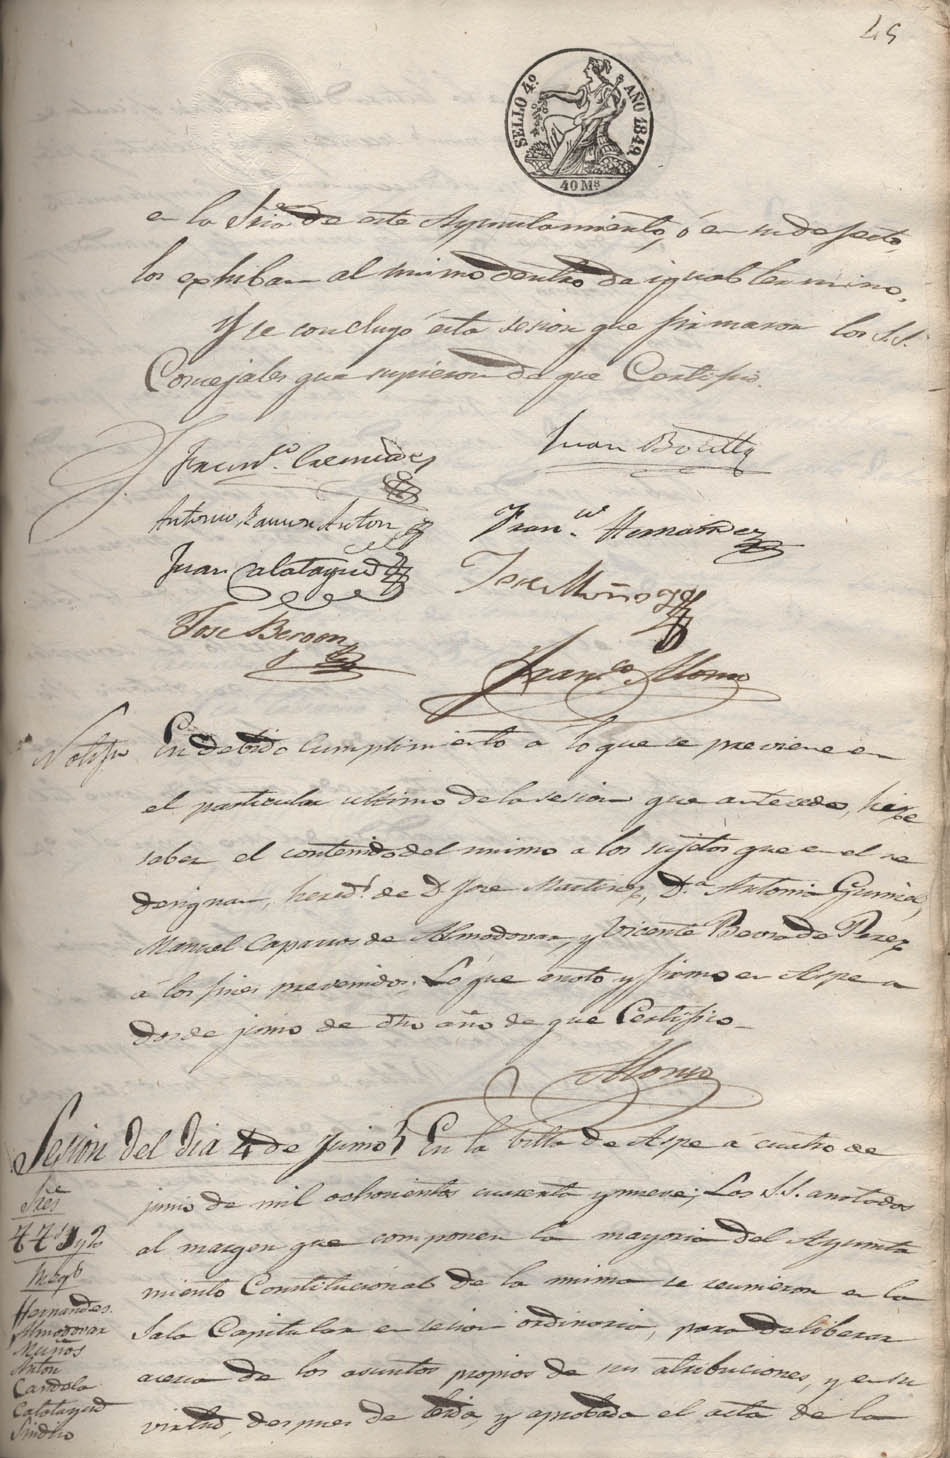 45
SELLO 4.º AÑO 1849
40 Ms
en la Sria de este Ayuntamiento, ó en su defecto,
los exhiban al mismo dentro de igual termino.
Y se concluyó esta sesion que firmaron los S.S.
Concejales que supieron de que Certifico.
Juan Botella
Antonio Ramon Anton
Fran.co Hernandez
Juan Calatayud
Jose Muñoz
Jose
Fran.co Alonso
En debido cumplimiento a lo que se previene en
el particular ultimo de la sesion que antecede, hice
saber el contenido del mismo a los sujetos que en el se
designan, hered.s de D. Jose Martinez, D.a Antonia
Manuel Caparros de Almodovar, y Vicente de Perez
a los fines prevenidos. Lo que anoto y firmo en Aspe a
dos de junio de dho año de que Certifico
Alonso
Sesion del dia 4 de Junio
En la villa de Aspe a cuatro de
junio de mil ochocientos cuarenta y nueve; Los S.S. anotados
al margen que componen la mayoria del Ayunta
miento Constitucional de la misma se reunieron en la
Sala Capitular en sesion ordinaria, para deliberar
acerca de los asuntos propios de sus atribuciones, y en su
virtud, despues de leida y aprobada el acta de la
Sres
Hernandes
Almodovar
Muños
Anton
Candela
Calatayud
Sindico